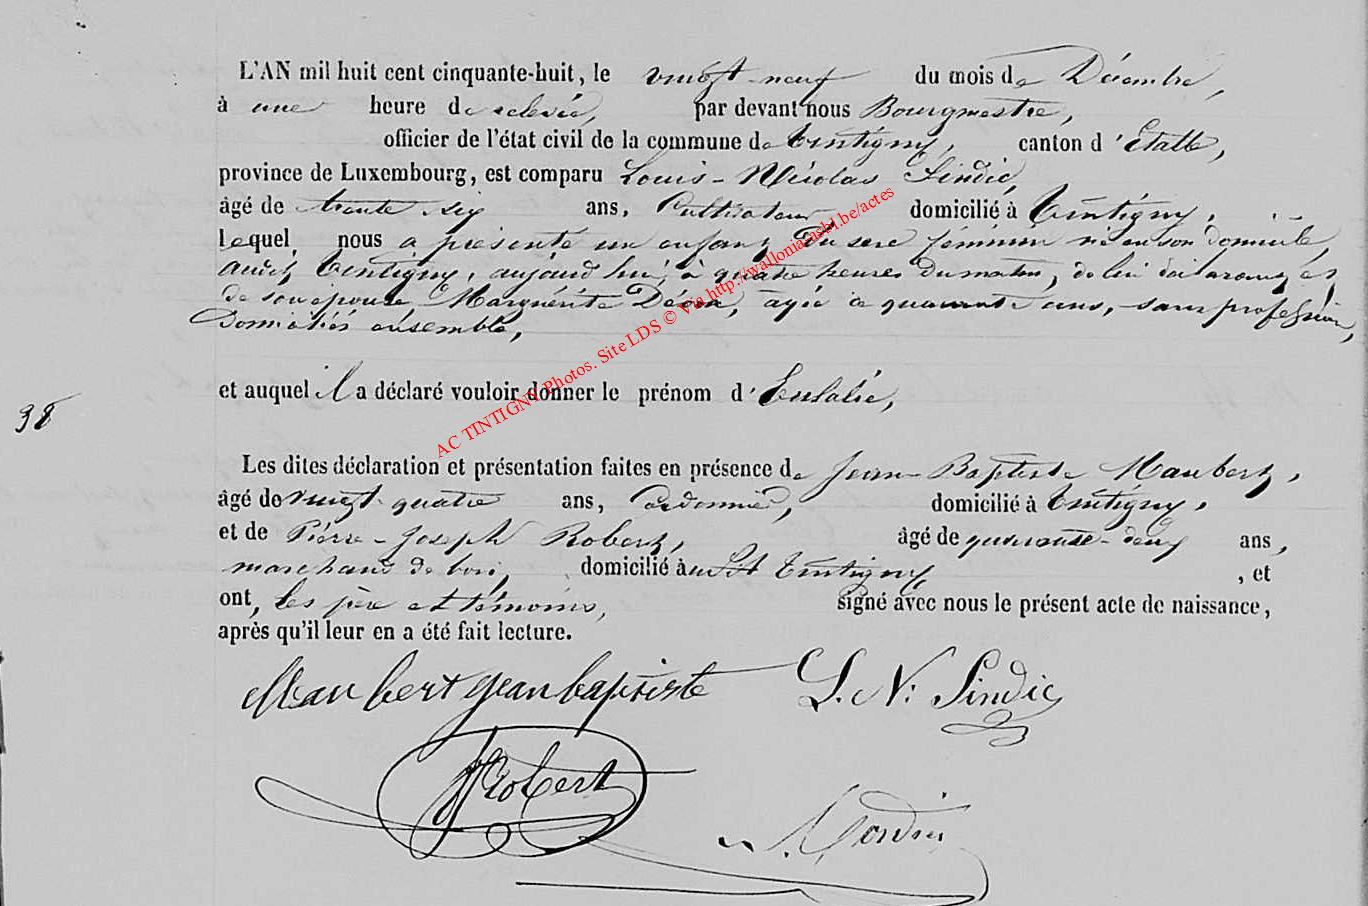 L'AN mil huit cent cinquante-huit, le vingt neuf du mois de Décembre,
à une heure de relevée, par devant nous Bourgmestre,
officier de l'état civil de la commune de Tintigny, canton d'Etalle,
province de Luxembourg, est comparu Louis-Nicolas Sindic,
âgé de trente six ans, Cultivateur, domicilié à Tintigny,
lequel nous a présenté un enfant du sexe féminin né en son domicile,
audit Tintigny, aujourd'hui, à quatre heures du matin, de lui déclarant, et
de son épouse Marguérite, âgée de quarante ans, sans profession,
domiciliés ensemble,
et auquel il a déclaré vouloir donner le prénom d'Eulalie,
38
Les dites déclaration et présentation faites en présence de Jean-Baptiste Maubert,
âgé de vingt-quatre ans, Cordonnier, domicilié à Tintigny,
et de Pierre-Joseph Robert, âgé de quarante-deux ans,
marchand de bois, domicilié à Tintigny, et
ont, les père et témoins, signé avec nous le présent acte de naissance,
après qu'il leur en a été fait lecture.
Maubert jean baptiste L. N. Sindic
Robert
AC TINTIGNY Photos. Site LDS © Via http://wallonia.asbl.be/actes